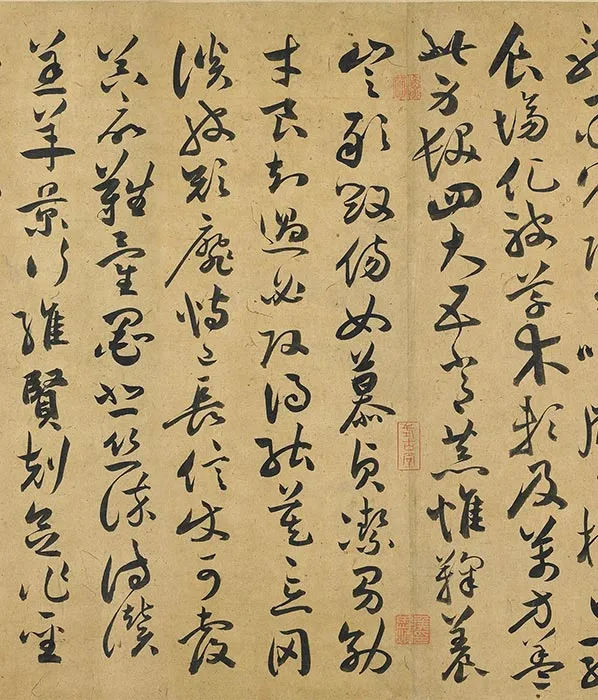 食場化被草木賴及萬方蓋
此身髮四大五常恭惟鞠養
豈敢毀傷女慕貞潔男效
才良知過必改得能莫忘罔
談彼短靡恃己長信使可覆
器欲難量墨悲絲染詩讚
羔羊景行維賢剋念作聖